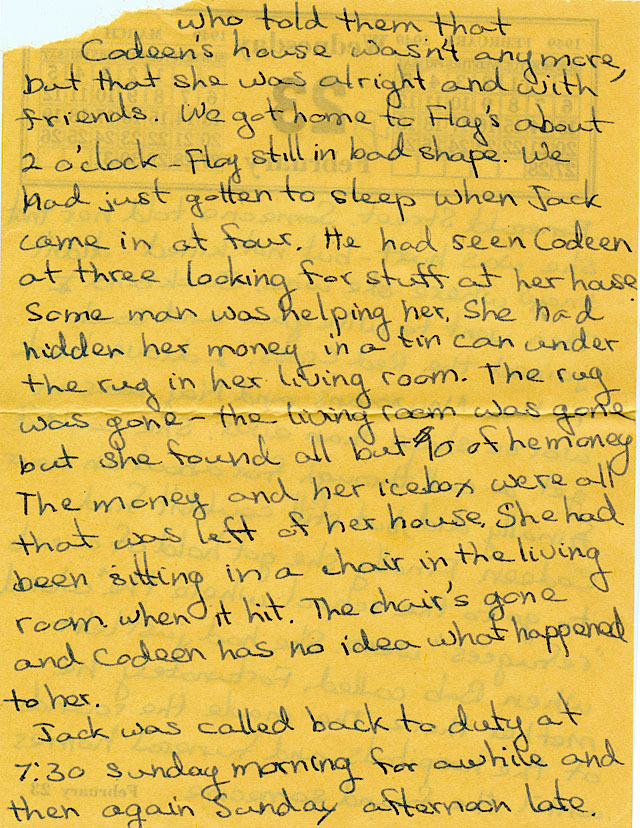 who told them that
Codeen's house wasn't anymore,
but that she was alright and with
friends. We got home to Flay's about
2 o'clock - Flay still in bad shape. We
had just gotten to sleep when Jack
came in at four. He had seen Codeen
at three looking for stuff at her house.
Some man was helping her. She had
hidden her money in a tin can under
the rug in her living room. The rug
was gone - the living room was gone
but she found all but $90 of he money
The money and her icebox were all
that was left of her house. She had
been sitting in a chair in the living
room when it hit. The chair's gone
and Codeen has no idea what happened
to her.
Jack was called back to duty at
7:30 Sunday morning for awhile and
then again Sunday afternoon late.